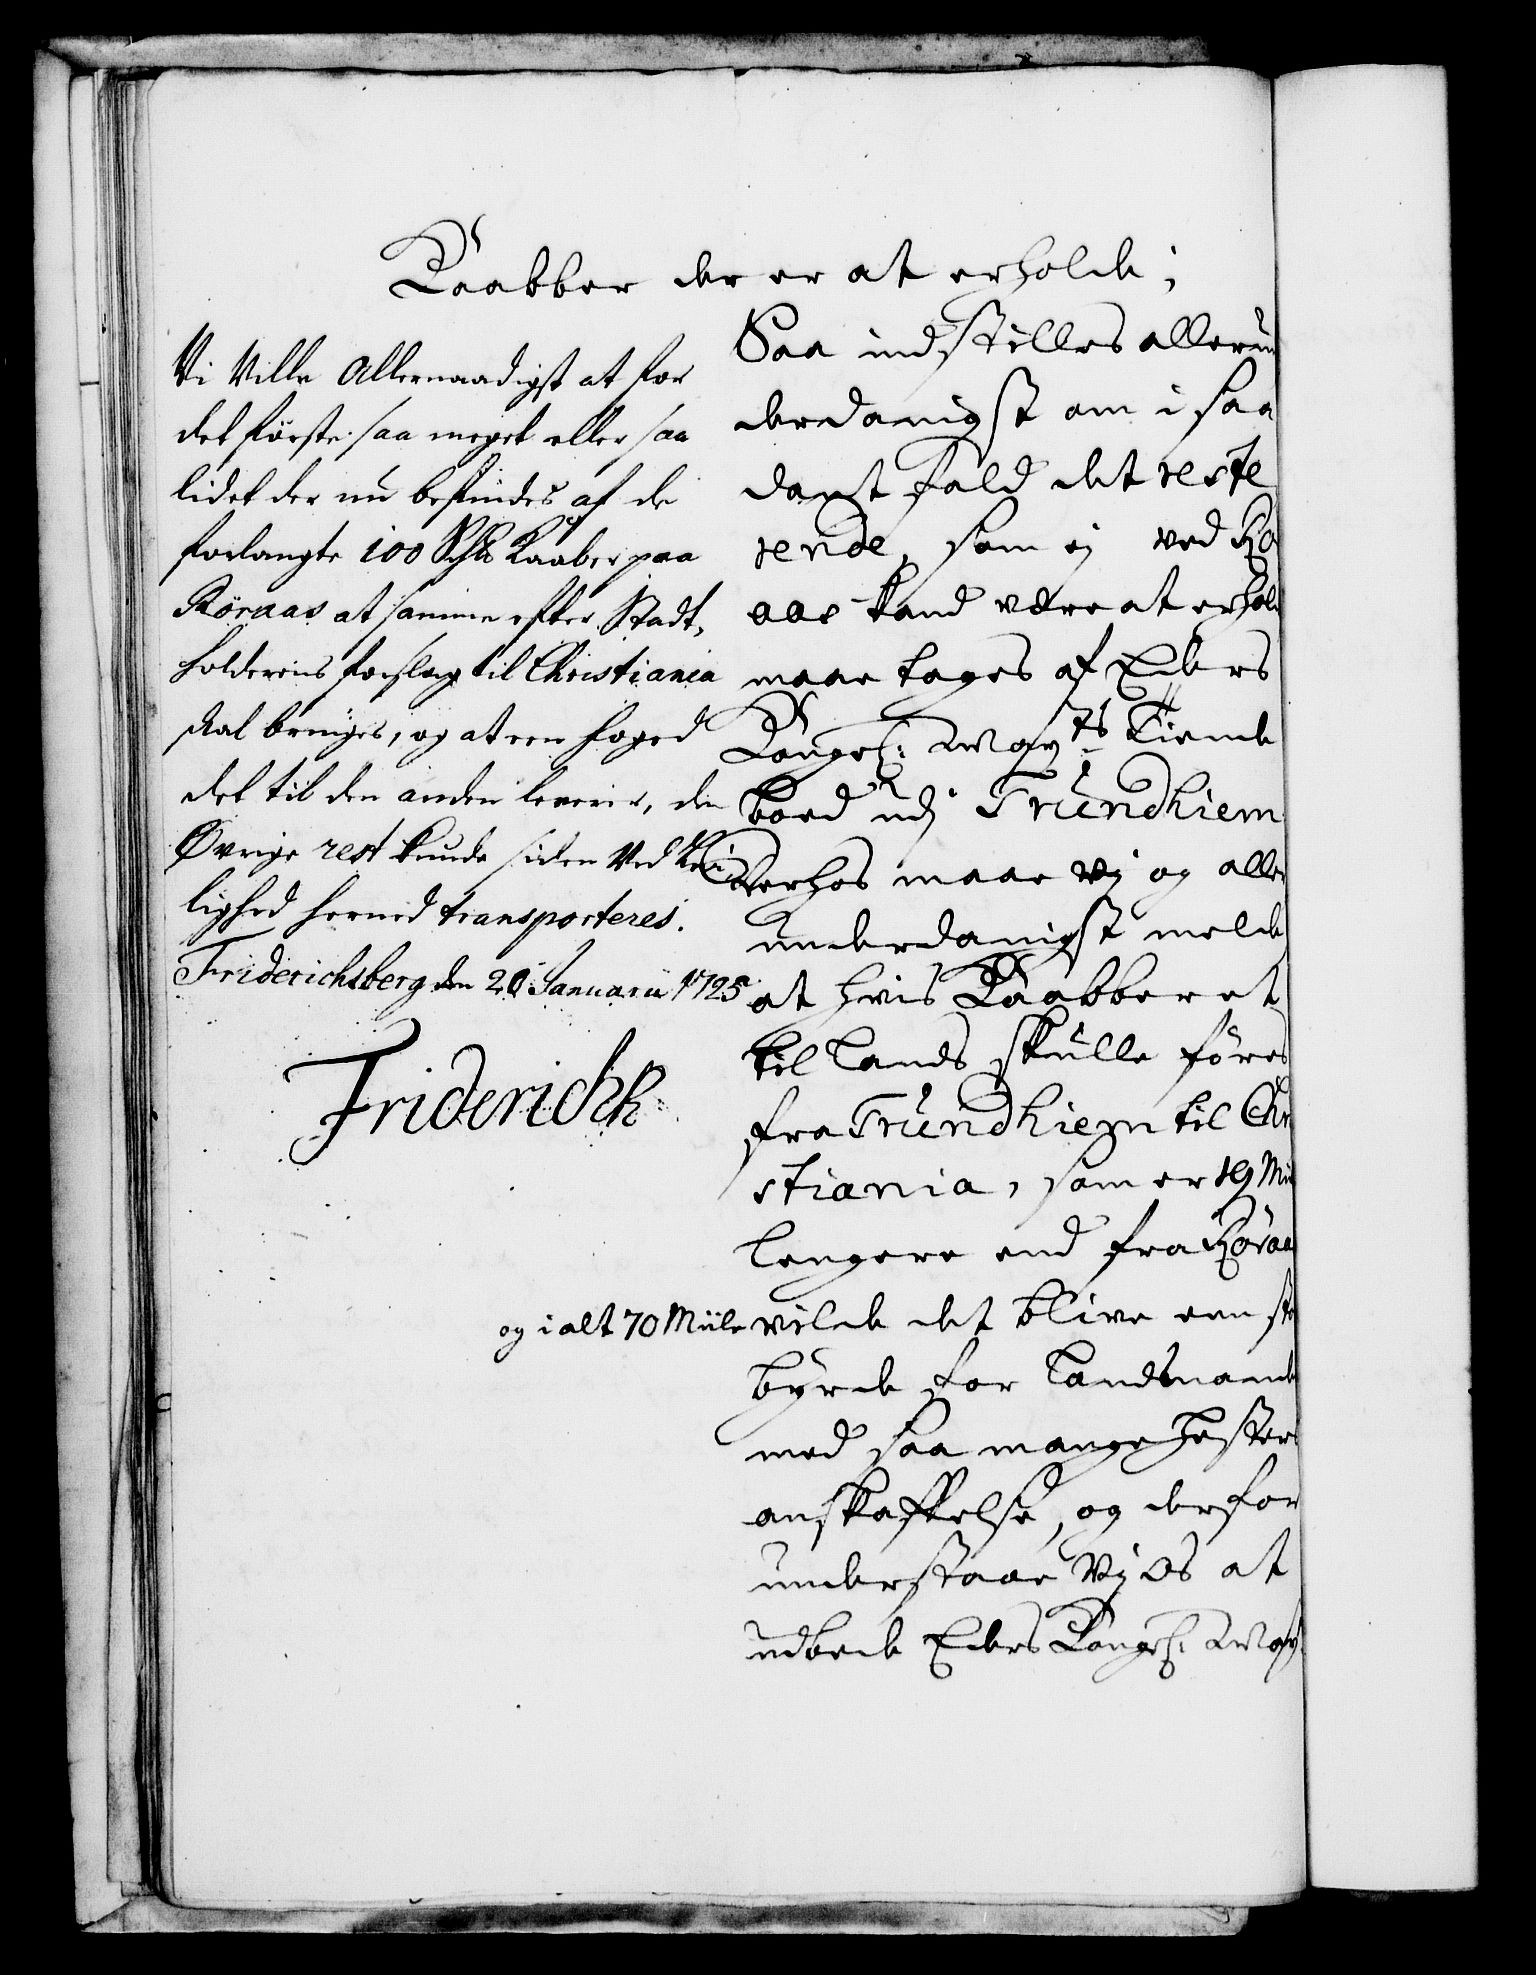 Kaabber der er at erholde;
Vi Ville Allernaadigst at for
det förste saa meget eller saa
lidet der nu befindes af de
forlangte 100 Kaaber paa
Röraas at samme efter Stadt,
holderens forslag til Christiania
skal bringes, og at een foged
det til den anden leverer, den
Øvrige rest kunde siden Ved Lei
lighed hermed transporteres.
Friderichsberg den 20 Januarii 1725
Friderich
og i alt 70 Miile
Saa indstilles allerun
derdanigst om i saa
dant fald det reste
rende, som ej ved Rö
aas kand være at erhold
maae tages af Eders
Kongel: May:ts Tiende
boed udj Trundhiem
Derhos maae Vj og aller
underdanigst melde
at hvis Kaabberet
til Lands skulle föres
fra Trundhiem til Chri
stiania, som er 19 Mii
lengere end fra Röraa
vilde det blive een sto
byrde for Landsmande
med saa mange hesters
anskaffelse, og derfor
understaae Vj Os at
udbede Eders Kongel: May: